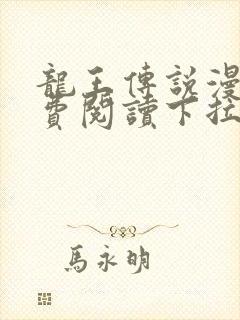 龍王傳說漫
費閱讀下拉
馬永明